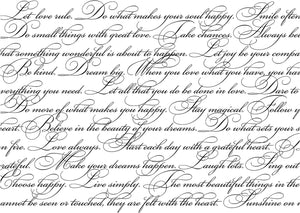 Let love rule. Do what makes your soul happy. Smile often
Do small things with great love. Take chances. Always be
that something wonderful is about to happen. Let joy be your compa
Be kind. Dream big. When you love what you have, you ha
everything you need. Let all that you do be done in love. Dare to
Do more of what makes you happy. Stay magical. Follow
heart. Believe in the beauty of your dreams. Do what sets your s
on fire. Love always. Start each day with a grateful heart.
grateful. Make your dreams happen. Laugh lots. Sing out
Choose happy. Live simply. The most beautiful things in the
cannot be seen or touched, they are felt with the heart. Sunshine on